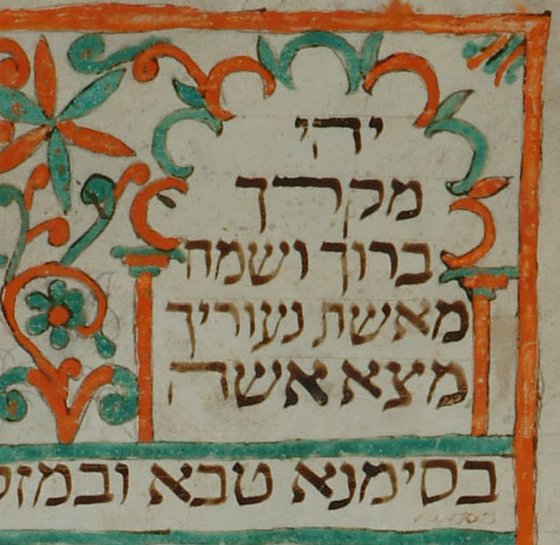 יהי
מקרך
ברוך ושמח
מאשת נעוריך
מצא אשה
בסימנא טבא ובמזל